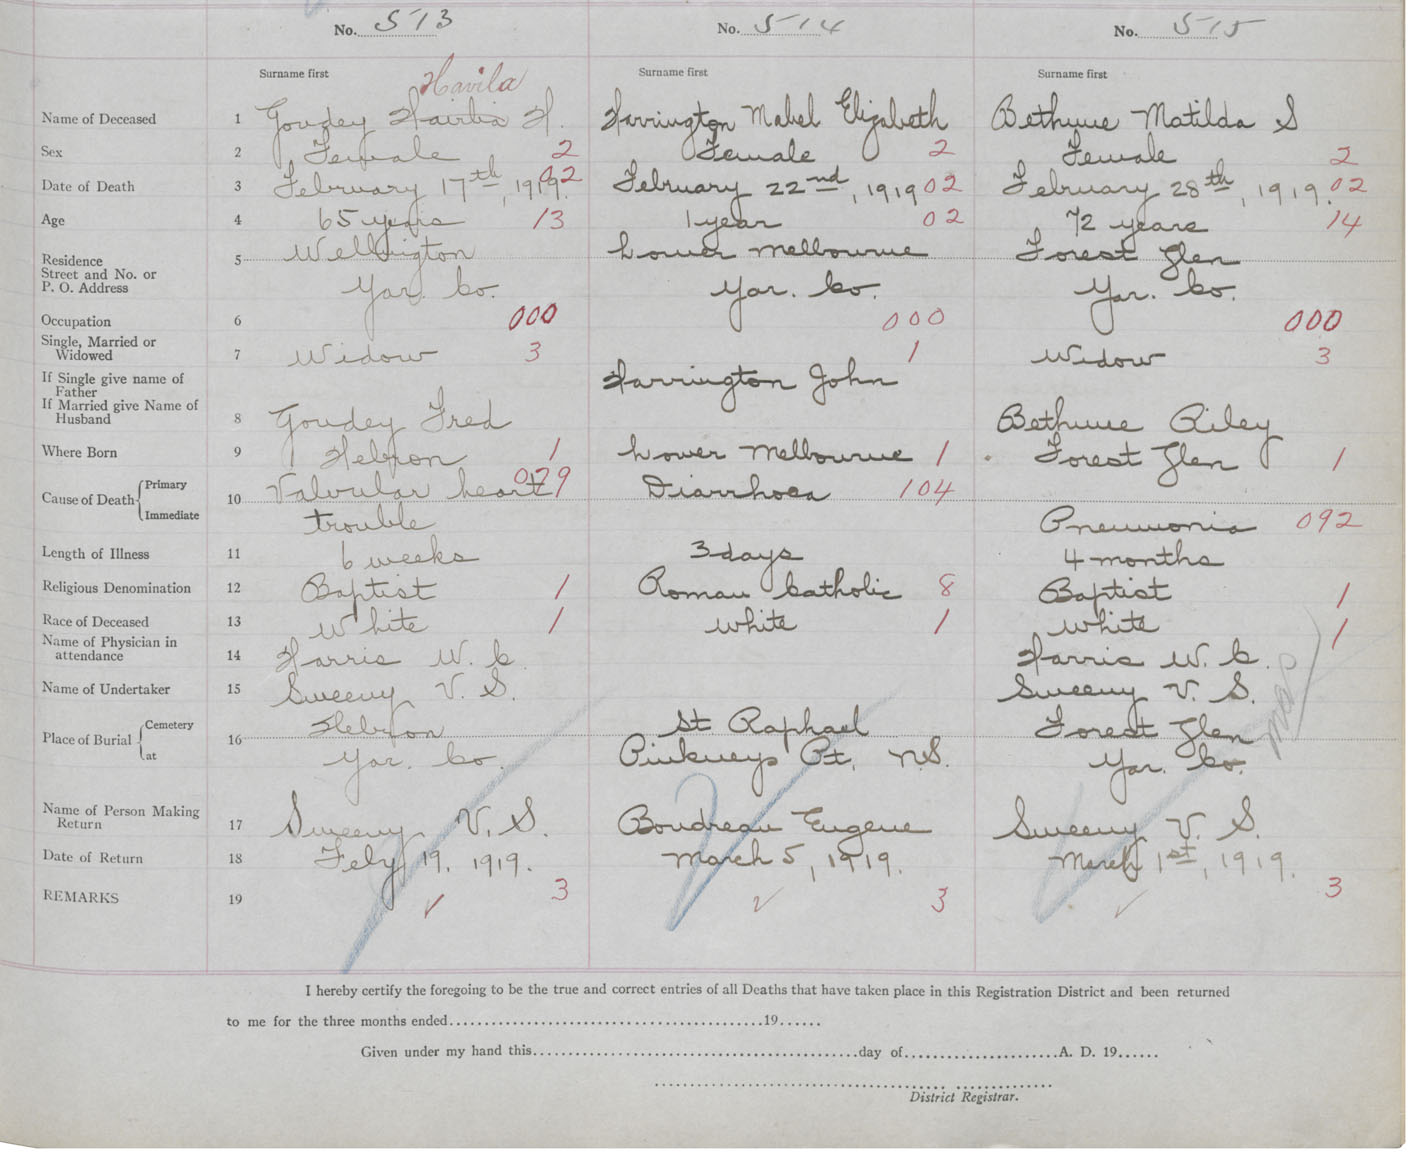 No. 513 No. 514 No. 515
Surname first Surname first Surname first
Havila
Name of Deceased 1 Goudey Hairlia H. Harrington Mabel Elizabeth Bethune Matilda S
Sex 2 Female 2 Female 2 Female 2
Date of Death 3 February 17th, 1919. 02 February 22nd, 1919 02 February 28th, 1919. 02
Age 4 65 years 13 1 year 02 72 years 14
Residence 5 Wellington Lower Melbourne Forest Glen
Street and No. or
P. O. Address Yar. Co. Yar. Co. Yar. Co.
Occupation 6 000 000 000
Single, Married or
Widowed 7 Widow 3 1 Widow 3
If Single give name of
Father Harrington John
If Married give Name of
Husband 8 Goudey Fred Bethune Riley
Where Born 9 Hebron 1 Lower Melbourne 1 Forest Glen 1
Cause of Death Primary 10 Valvular heart 079 Diarrhoea 104
Immediate trouble Pneumonia 092
Length of Illness 11 6 weeks 3 days 4 months
Religious Denomination 12 Baptist 1 Roman Catholic 8 Baptist 1
Race of Deceased 13 White 1 White 1 White 1
Name of Physician in
attendance 14 Harris W. C. Harris W. C.
Name of Undertaker 15 Sweeny V. S. Sweeny V. S.
Place of Burial Cemetery 16 Hebron St Raphael Forest Glen
at Yar. Co. Pinkneys Pt. N.S. Yar. Co.
Name of Person Making
Return 17 Sweeny V. S. Boudreau Eugene Sweeny V. S.
Date of Return 18 Feby 19, 1919. March 5, 1919. March 1st, 1919.
REMARKS 19 3 3 3
I hereby certify the foregoing to be the true and correct entries of all Deaths that have taken place in this Registration District and been returned
to me for the three months ended 19
Given under my hand this day of A. D. 19
District Registrar.